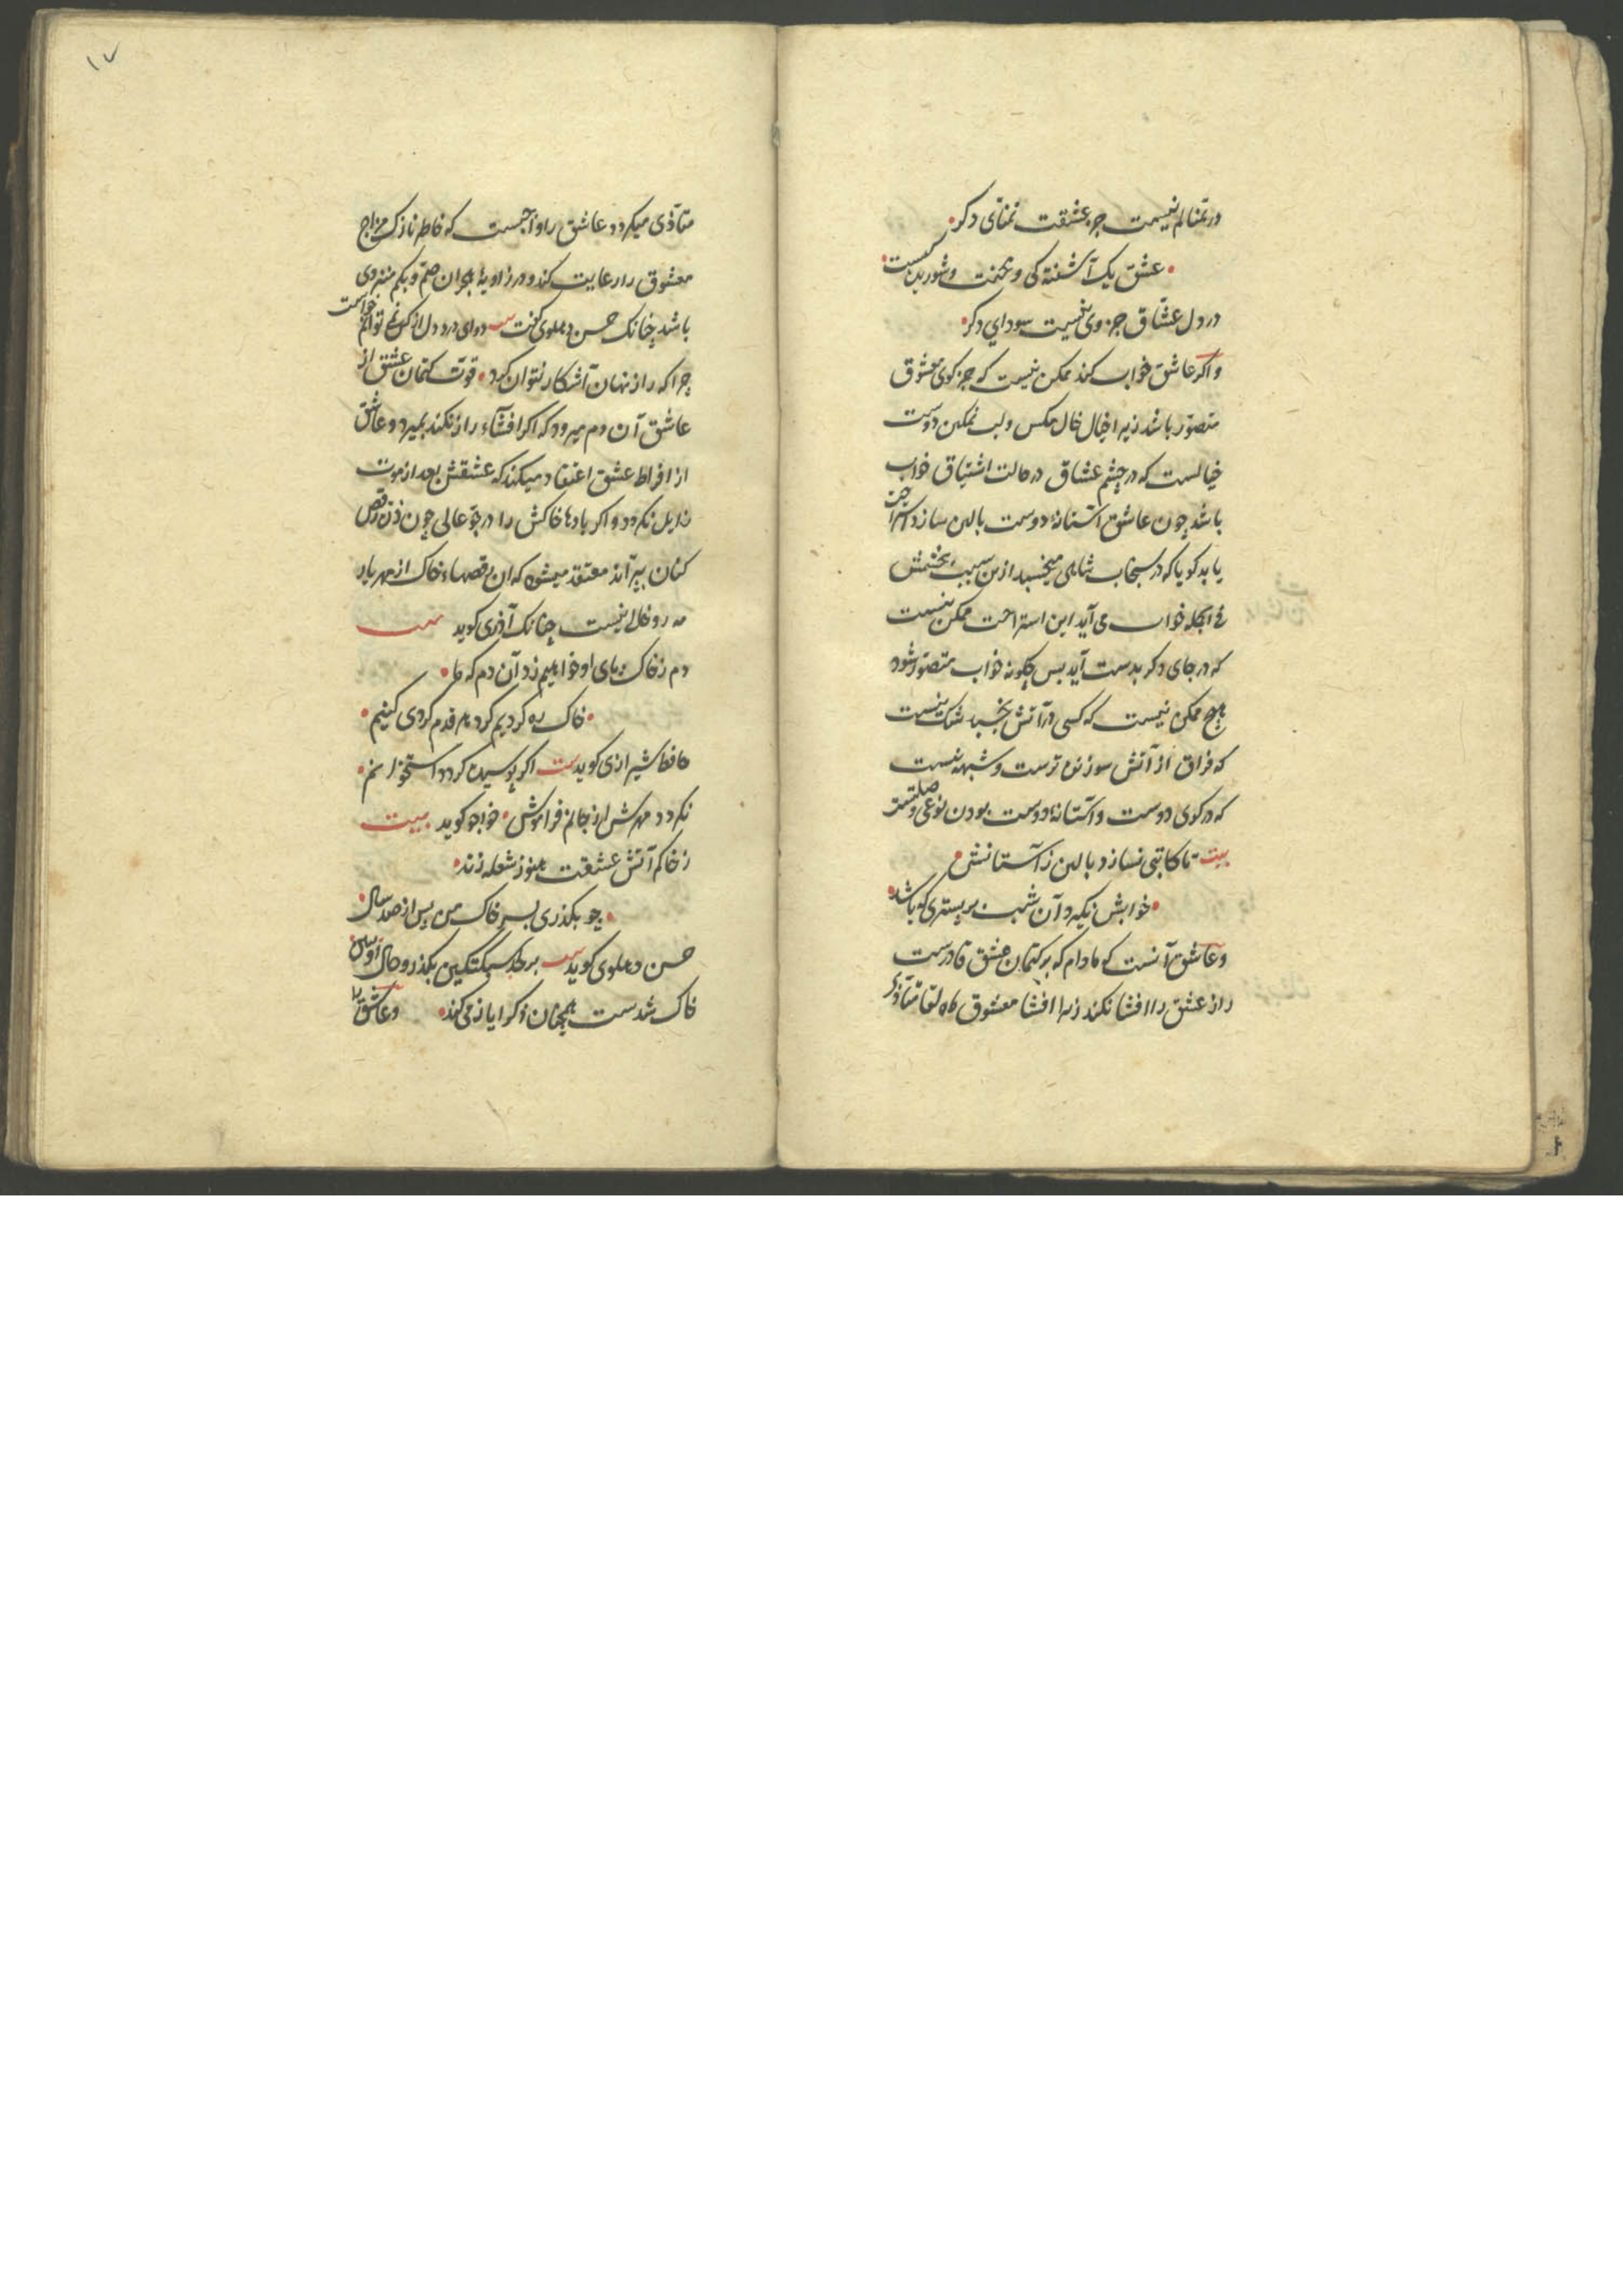 در تمنالم نیست جز عشقت تمنای دکر
عشق یک آشفته کی و محنت و شوریده کیست
در دل عشاق جز وی نیست سودای دکر
و اکر عاشق خواب کند ممکن نیست که جز کوی معشوق
متصور باشد زیرا خیال خال مکس و لب نمکین دوست
خیالست که در چشم عشاق در حالت اشتیاق خواب
باشد چون عاشق آستانهٔ دوست بالین سازد
یابد کویا که در سنجاب شاهی میخسبد ازین سبب بچشمش
فی الجمله خواب می آید این استراحت ممکن نیست
که در جای دکر بدست آید بس چکونه خواب متصور شود
هیچ ممکن نیست که کسی در آتش بخسبد شک نیست
که فراق از آتش سوزنده ترست و شبهه نیست
که در کوی دوست و آستانهٔ دوست بودن نوعی وصلتست
بیت تا کاتبی نسازد بالین ز آستانش
خوابش نکیرد آن شب بر بستری که باشد
و عاشق آنست که مادام که بر کتمان عشق قادرست
راز عشق را افشا نکند زیرا افشا معشوق ماه لقا متأذی
١٧
متأذی میکردد عاشق را واجبست که خاطر نازک مزاج
معشوق را رعایت کند و در زاویهٔ هجران صم و بکم منزوی
باشد چنانک حسن دهلوی کفت بیت دوای درد دل از کس نمی توانم خواست
چرا که راز نهان آشکار نتوان کرد قوت کتمان عشق از
عاشق آن دم میرود که اکر افشاء راز نکند بمیرد و عاشق
از افراط عشق اعتقاد میکند که عشقش بعد از موت
زایل نکردد و اکر بادها خاکش را در جو عالی چون ذره رقص
کنان بیرآند معتقد میشود که این رقصهاء خاک از مهر یار
مه رو خالی نیست چنانک آذری کوید بیت
دم ز خاک پای او خواهیم زد آن دم که ما
خاک ره کردیم کرد هر قدم کردی کنیم
حافظ شیرازی کوید بیت اکر پوسیده کردد استخوانم
نکردد مهرش از جانم فراموش خواجو کوید بیت
ز خاکم آتش عشقت هنوز شعله زند
چو بکذری بسر خاک من پس از صد سال
حسن دهلوی کوید بیت بر خاک سبکتکین بکذر و حال او ببین
خاک شدست همچنان ذکر ایاز می کند و عاشق را